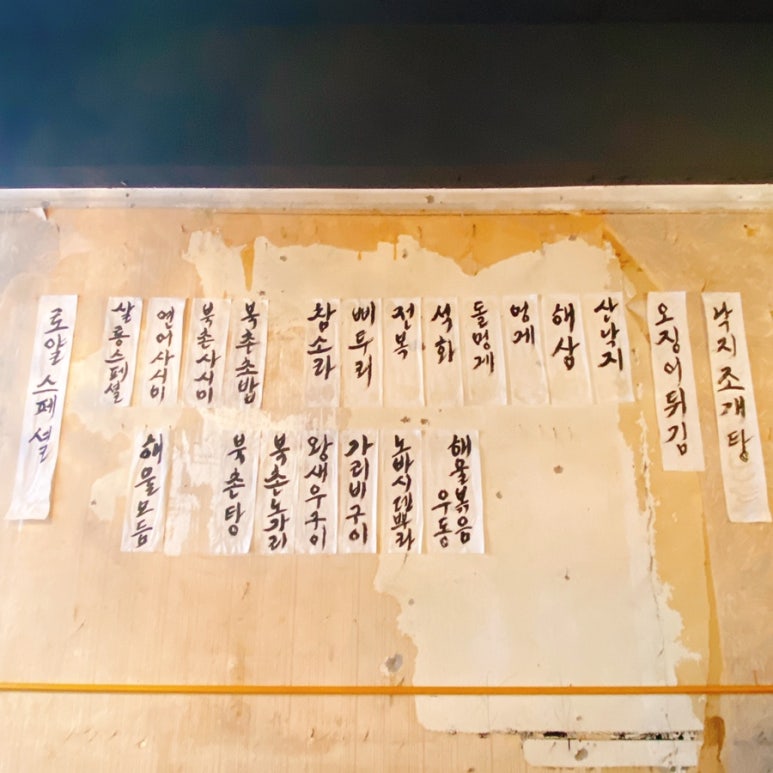 로얄스페셜
살롱스페셜
연어사시미
북촌사시미
북촌초밥
참소라
삐뚜리
전복
석화
돌멍게
멍게
해삼
산낙지
오징어튀김
낙지조개탕
해물모듬
북촌탕
북촌노가리
왕새우구이
가리비구이
노바시덴뿌라
해물볶음
우동